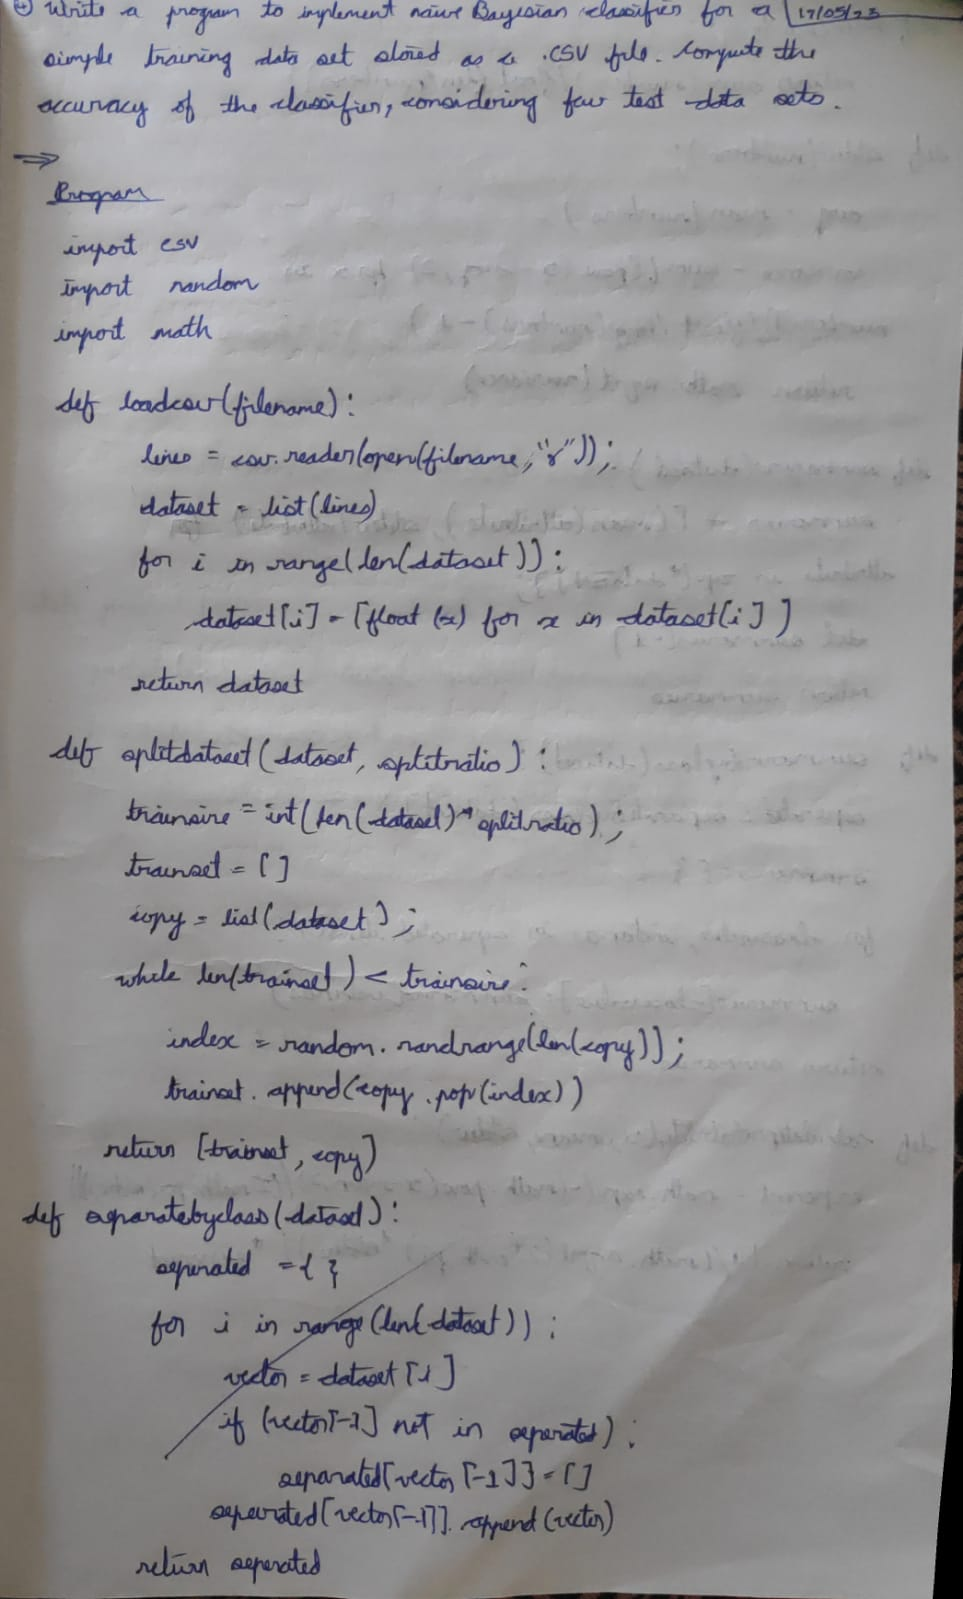 Write a program to implement naive Bayesian classifier for a 17/05/23
simple training data set stored as a .CSV file. Compute the
accuracy of the classifier, considering few test data sets.
⇒
Program
import csv
import random
import math
def loadcsv(filename):
lines = csv.reader(open(filename,"r"));
dataset = list(lines)
for i in range(len(dataset)):
dataset[i] = [float (x) for x in dataset[i] ]
return dataset
def splitdataset(dataset, splitratio):
trainsize = int(len(dataset)*splitratio);
trainset = []
copy = list(dataset);
while len(trainset) < trainsize:
index = random.randrange(len(copy));
trainset.append(copy.pop(index))
return [trainset, copy]
def separatebyclass(dataset):
seperated = { }
for i in range(len(dataset)):
vector = dataset[i]
if (vector[-1] not in seperated):
separated[vector[-1]] = []
seperated[vector[-1]].append(vector)
return seperated